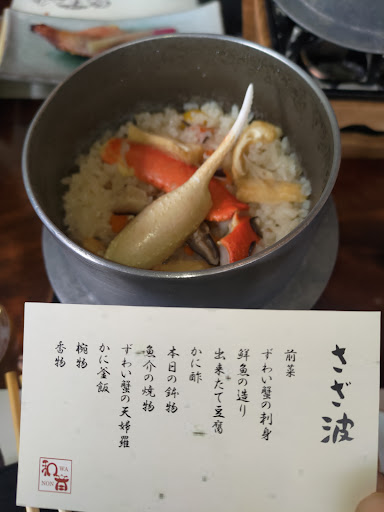 さざ波
前菜
ずわい蟹の刺身
鮮魚の造り
出来たて豆腐
かに酢
本日の鉢物
魚介の焼物
ずわい蟹の天婦羅
かに釜飯
椀物
香物
WA
NON